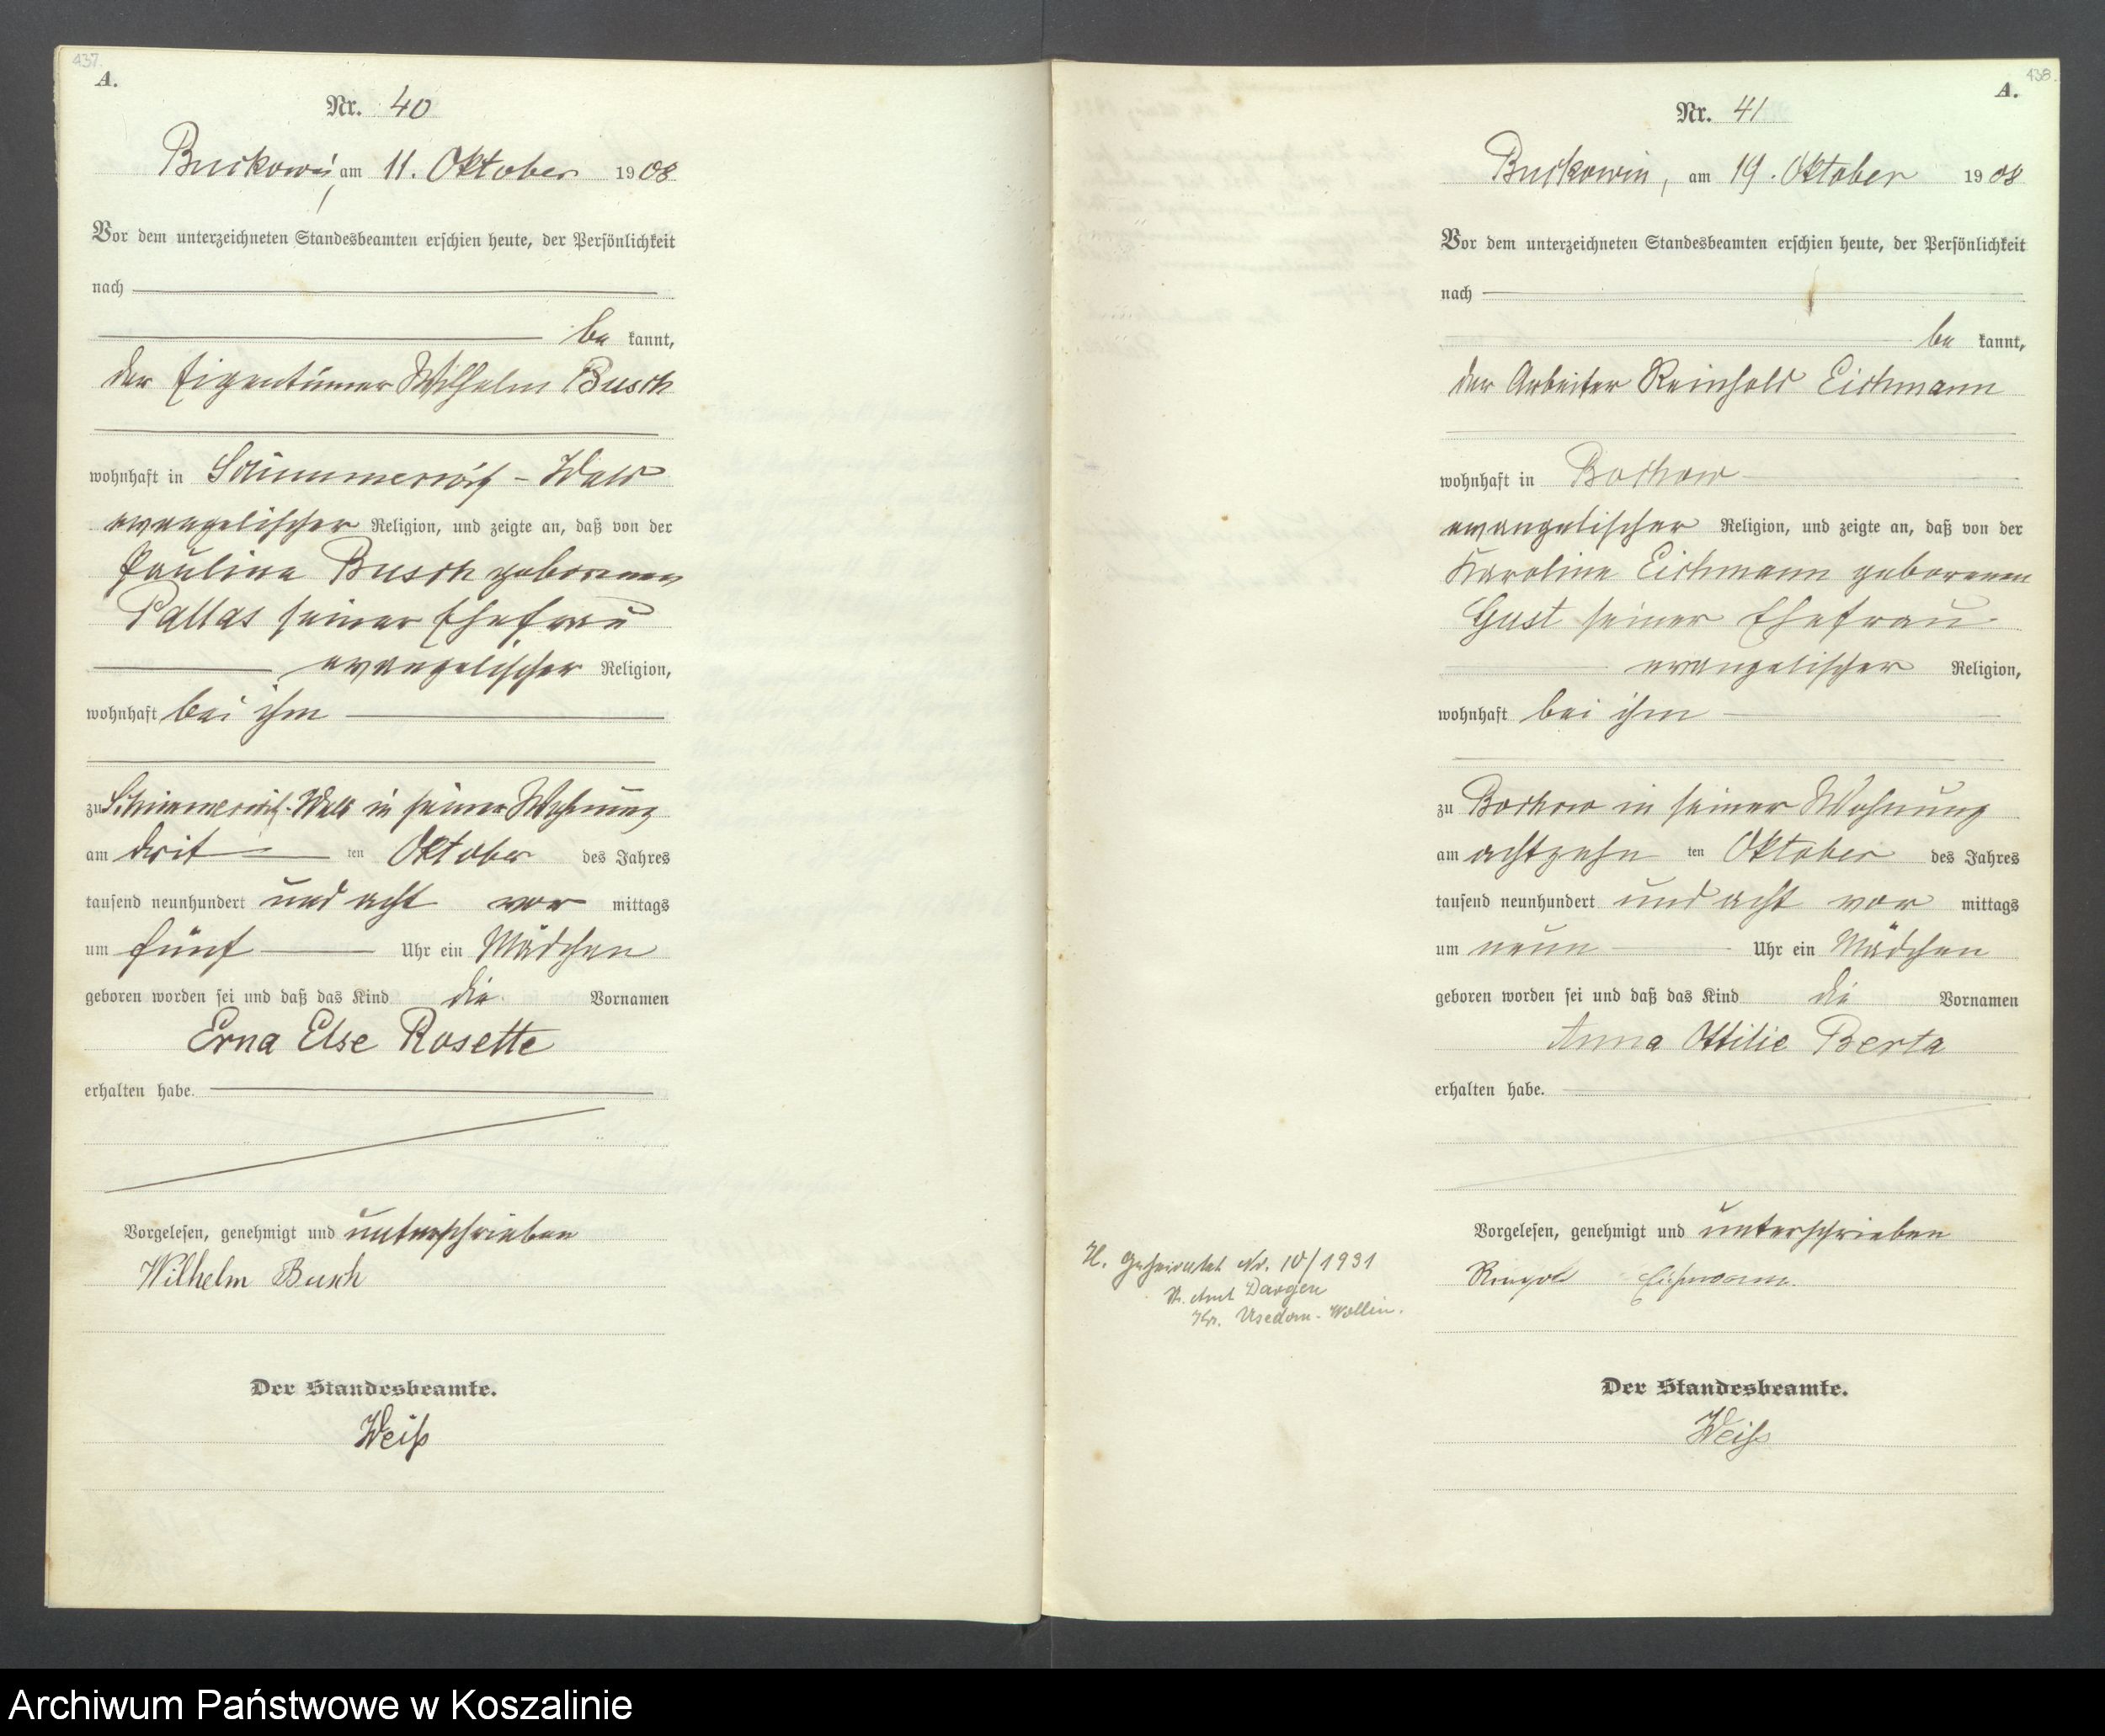 437.
A.
Nr. 40
Buckowin, am 11. Oktober 1908
Vor dem unterzeichneten Standesbeamten erschien heute, der Persönlichkeit
nach
be kannt,
der Eigentümer Wilhelm Busch
wohnhaft in Schimmerwitz-Wald
evangelischer Religion, und zeigte an, daß von der
Pauline Busch geborenen
Pallas seiner Ehefrau
evangelischer Religion,
wohnhaft bei ihm
zu Schimmerwitz-Wald in seiner Wohnung
am drit ten Oktober des Jahres
tausend neunhundert und acht vor mittags
um fünf Uhr ein Mädchen
geboren worden sei und daß das Kind die Vornamen
Erna Else Rosette
erhalten habe.
Vorgelesen, genehmigt und unterschrieben
Wilhelm Busch
Der Standesbeamte.
Weiß
438.
A.
Nr. 41
Buckowin, am 19. Oktober 1908
Vor dem unterzeichneten Standesbeamten erschien heute, der Persönlichkeit
nach
be kannt,
der Arbeiter Reinhold Eichmann
wohnhaft in Bochow
evangelischer Religion, und zeigte an, daß von der
Karoline Eichmann geborenen
Gust seiner Ehefrau
evangelischer Religion,
wohnhaft bei ihm
zu Bochow in seiner Wohnung
am achtzehn ten Oktober des Jahres
tausend neunhundert und acht vor mittags
um neun Uhr ein Mädchen
geboren worden sei und daß das Kind die Vornamen
Anna Ottilie Berta
erhalten habe.
Vorgelesen, genehmigt und unterschrieben
Eichmann.
Der Standesbeamte.
Weiß
H. Geheiratet Nr. 10/1931
St. Amt Dargen
Kr. Usedom-Wollin.
Archiwum Państwowe w Koszalinie